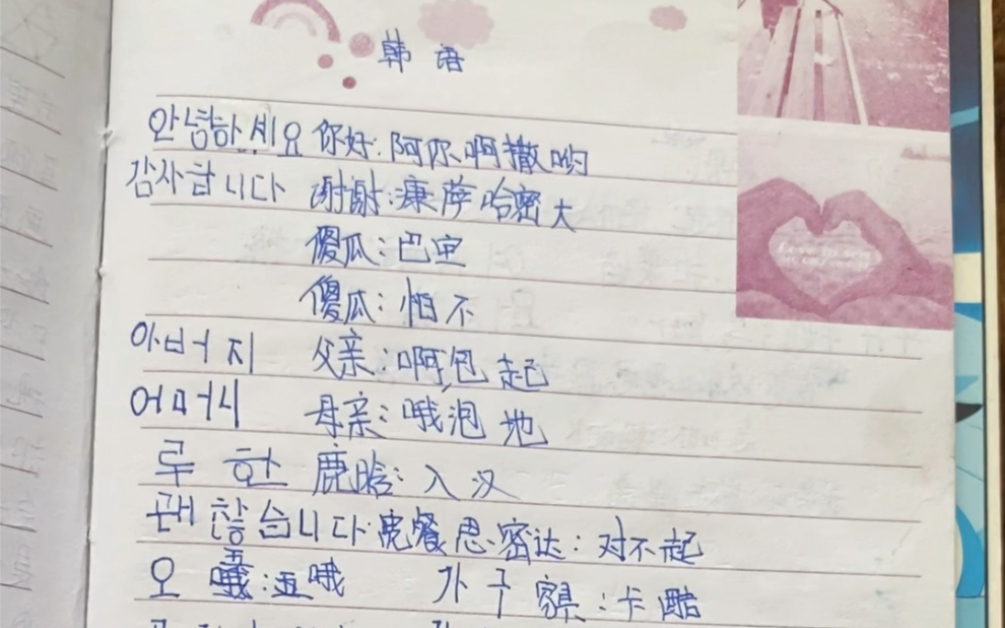 韩语
안녕하세요 你好:阿你啊撒哟
감사합니다 谢谢:康萨哈密大
傻瓜:巴宝
傻瓜:怕不
아버지 父亲:啊包起
어머니 母亲:哦泡地
루한 鹿晗:入汉
괜찮습니다 宽餐思密达:对不起
오 哦 가구 家具:卡酷